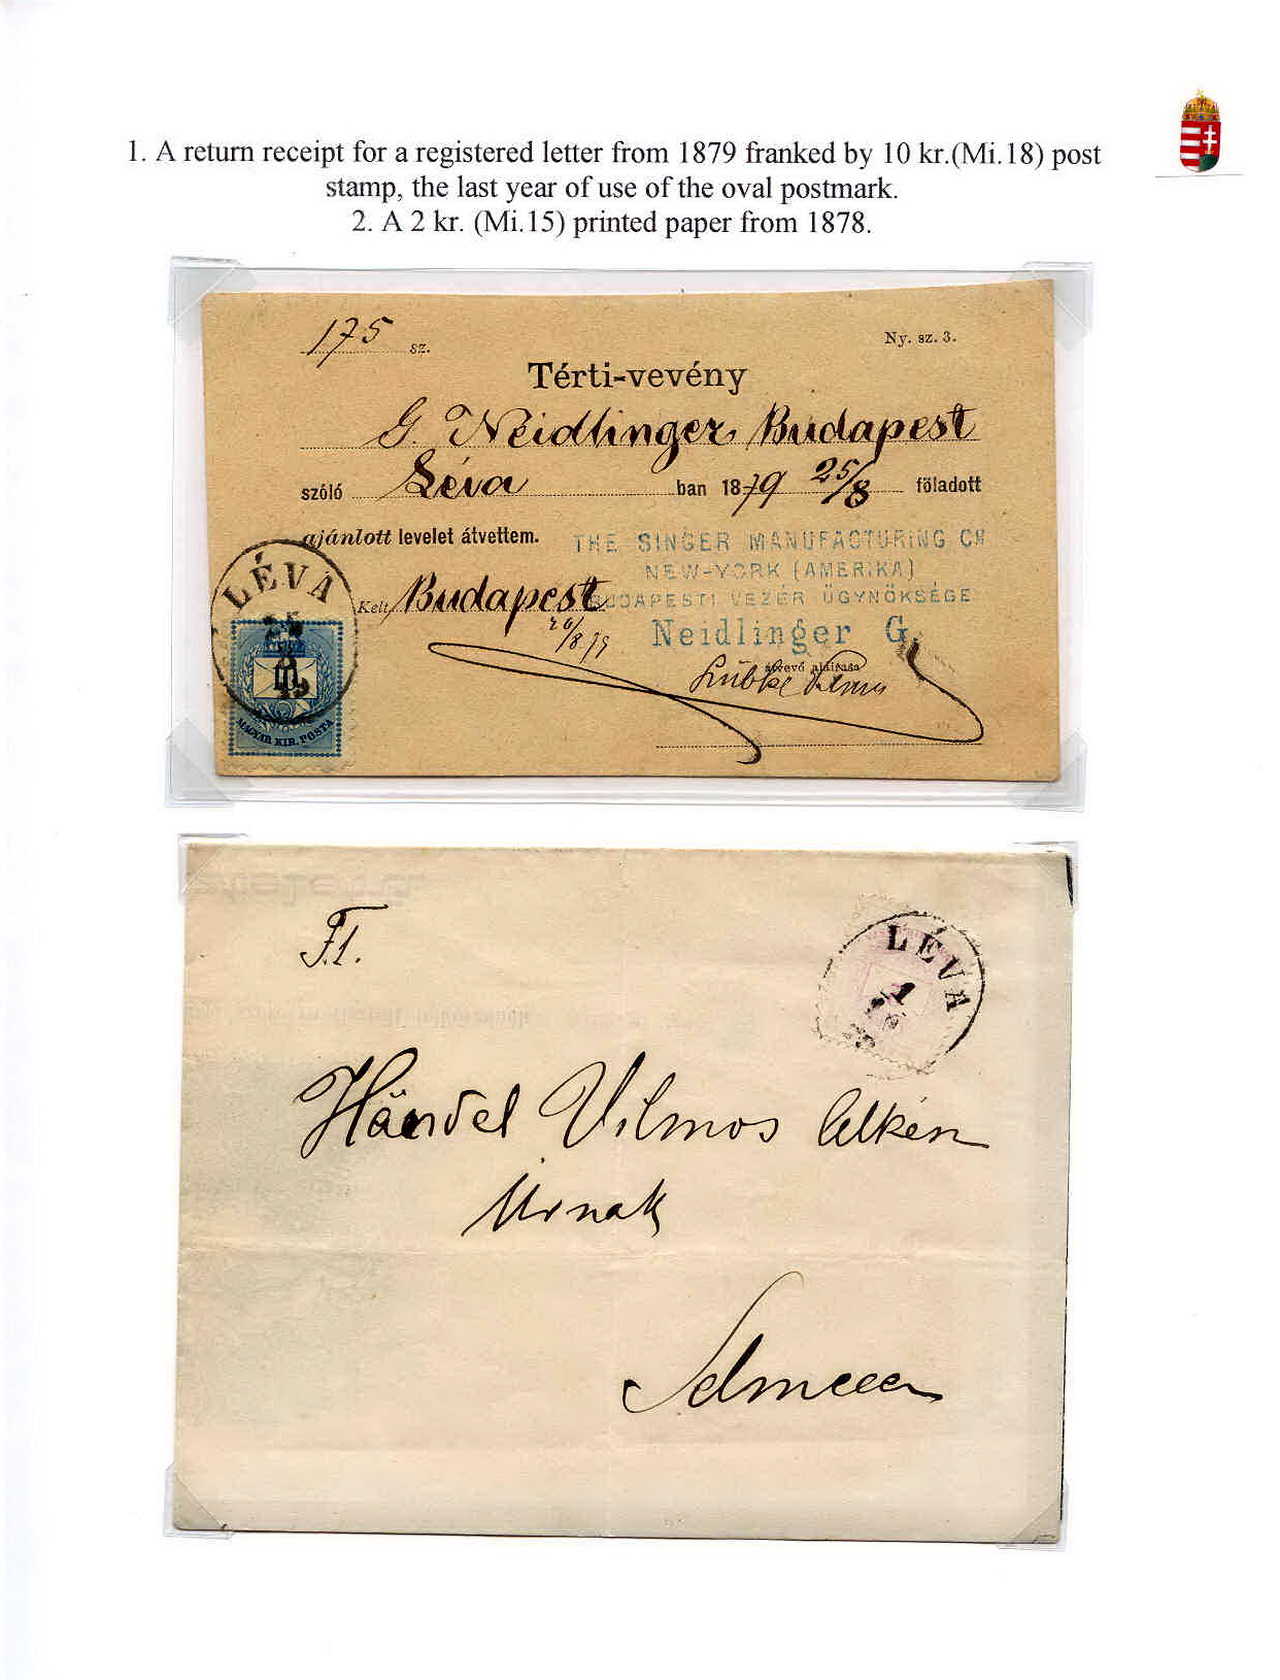 1. A return receipt for a registered letter from 1879 franked by 10 kr.(Mi.18) post
stamp, the last year of use of the oval postmark.
2. A 2 kr. (Mi.15) printed paper from 1878.
175 sz.
Ny. sz. 3.
Térti-vevény
G. Neidlinger Budapest
szóló Léva ban 1879 25/8 föladott
ajánlott levelet átvettem.
THE SINGER MANUFACTURING Co
NEW-YORK (AMERIKA)
Kelt Budapest
BUDAPESTI VEZÉR ÜGYNÖKSÉGE
26/8 79
Neidlinger G.
átvevő aláirása
LÉVA
25
8
79
MAGYAR KIR. POSTA
LÉVA
1
F.1.
Händel Vilmos
Urnak